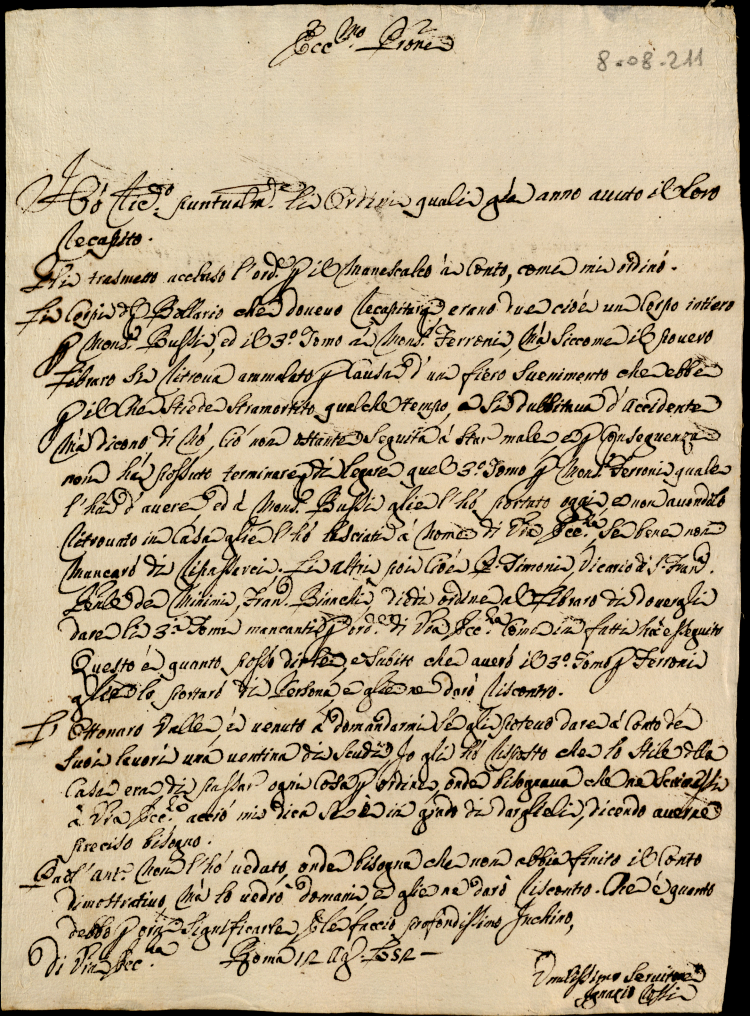 Ecc.mo Prone
8-08-211
Hó Ric.o puntualm.te li Ordini quali giá anno auuto il loro
recapito.
Li trasmetto accluso l'ord.e p il Manescalco á Conto, come mi ordinó.
Li Corpi del Bollario che doueuo recapitare, erano due cioé un Corpo intiero
p Mons.r Bussi, ed il 3.o Tomo á Mons.r Ferroni, Má siccome il pouero
Libraro si ritroua ammalato p causa d'un fiero suenimento che ebbe
p il che stiede stramortito qualche tempo, e si dubbitaua d'accidente
Má dicono di nó, ció non ostante seguita á star male e p conseguenza
non há possuto terminare di legare quel 3.o Tomo p Mons.r Ferroni quale
l'há d'auere, ed á Mons.r Bussi glie l'hó portato oggi, e non auendolo
ritrouato in Casa glie l'hó lasciati á nome di Vra Ecc.za, se bene non
mancaró di ripassarci. Li altri poi cioé P. Simoni, Vicario di S. Fran.
de Minimi, Fran. Bianchi, diedi ordine al Libraro di douergli
dare li 3.i Tomi mancanti p ord.e di Vra Ecc.za come in fatti há eseguito
Questo é quanto posso dirle, e subito che aueró il 3.o Tomo p Ferroni
glielo portaró di Persona e glie ne daró riscontro.
L'Ottonaro Valle, é venuto á domandarmi se gli poteuo dare á Conto de
suoi lauori una ventina di scudi, Io gli hó risposto che lo stile della
Casa era di passar ogni cosa p ordine, onde bisognaua che ne scriuessi
á Vra Ecc.za, acció mi dica se é in grado di darglieli, dicendo auerne
preciso bisogno.
non l'hó ueduto, onde bisogna che non abbia finito il Conto
dimostratiuo, Má lo uedró domani e glie ne daró riscontro. Che é quanto
debbo p ora significarle, e le faccio profondissimo Inchino,
di Vra Ecc.za Roma 12 Ag.
Umilissimo Seruitore
Ignazio